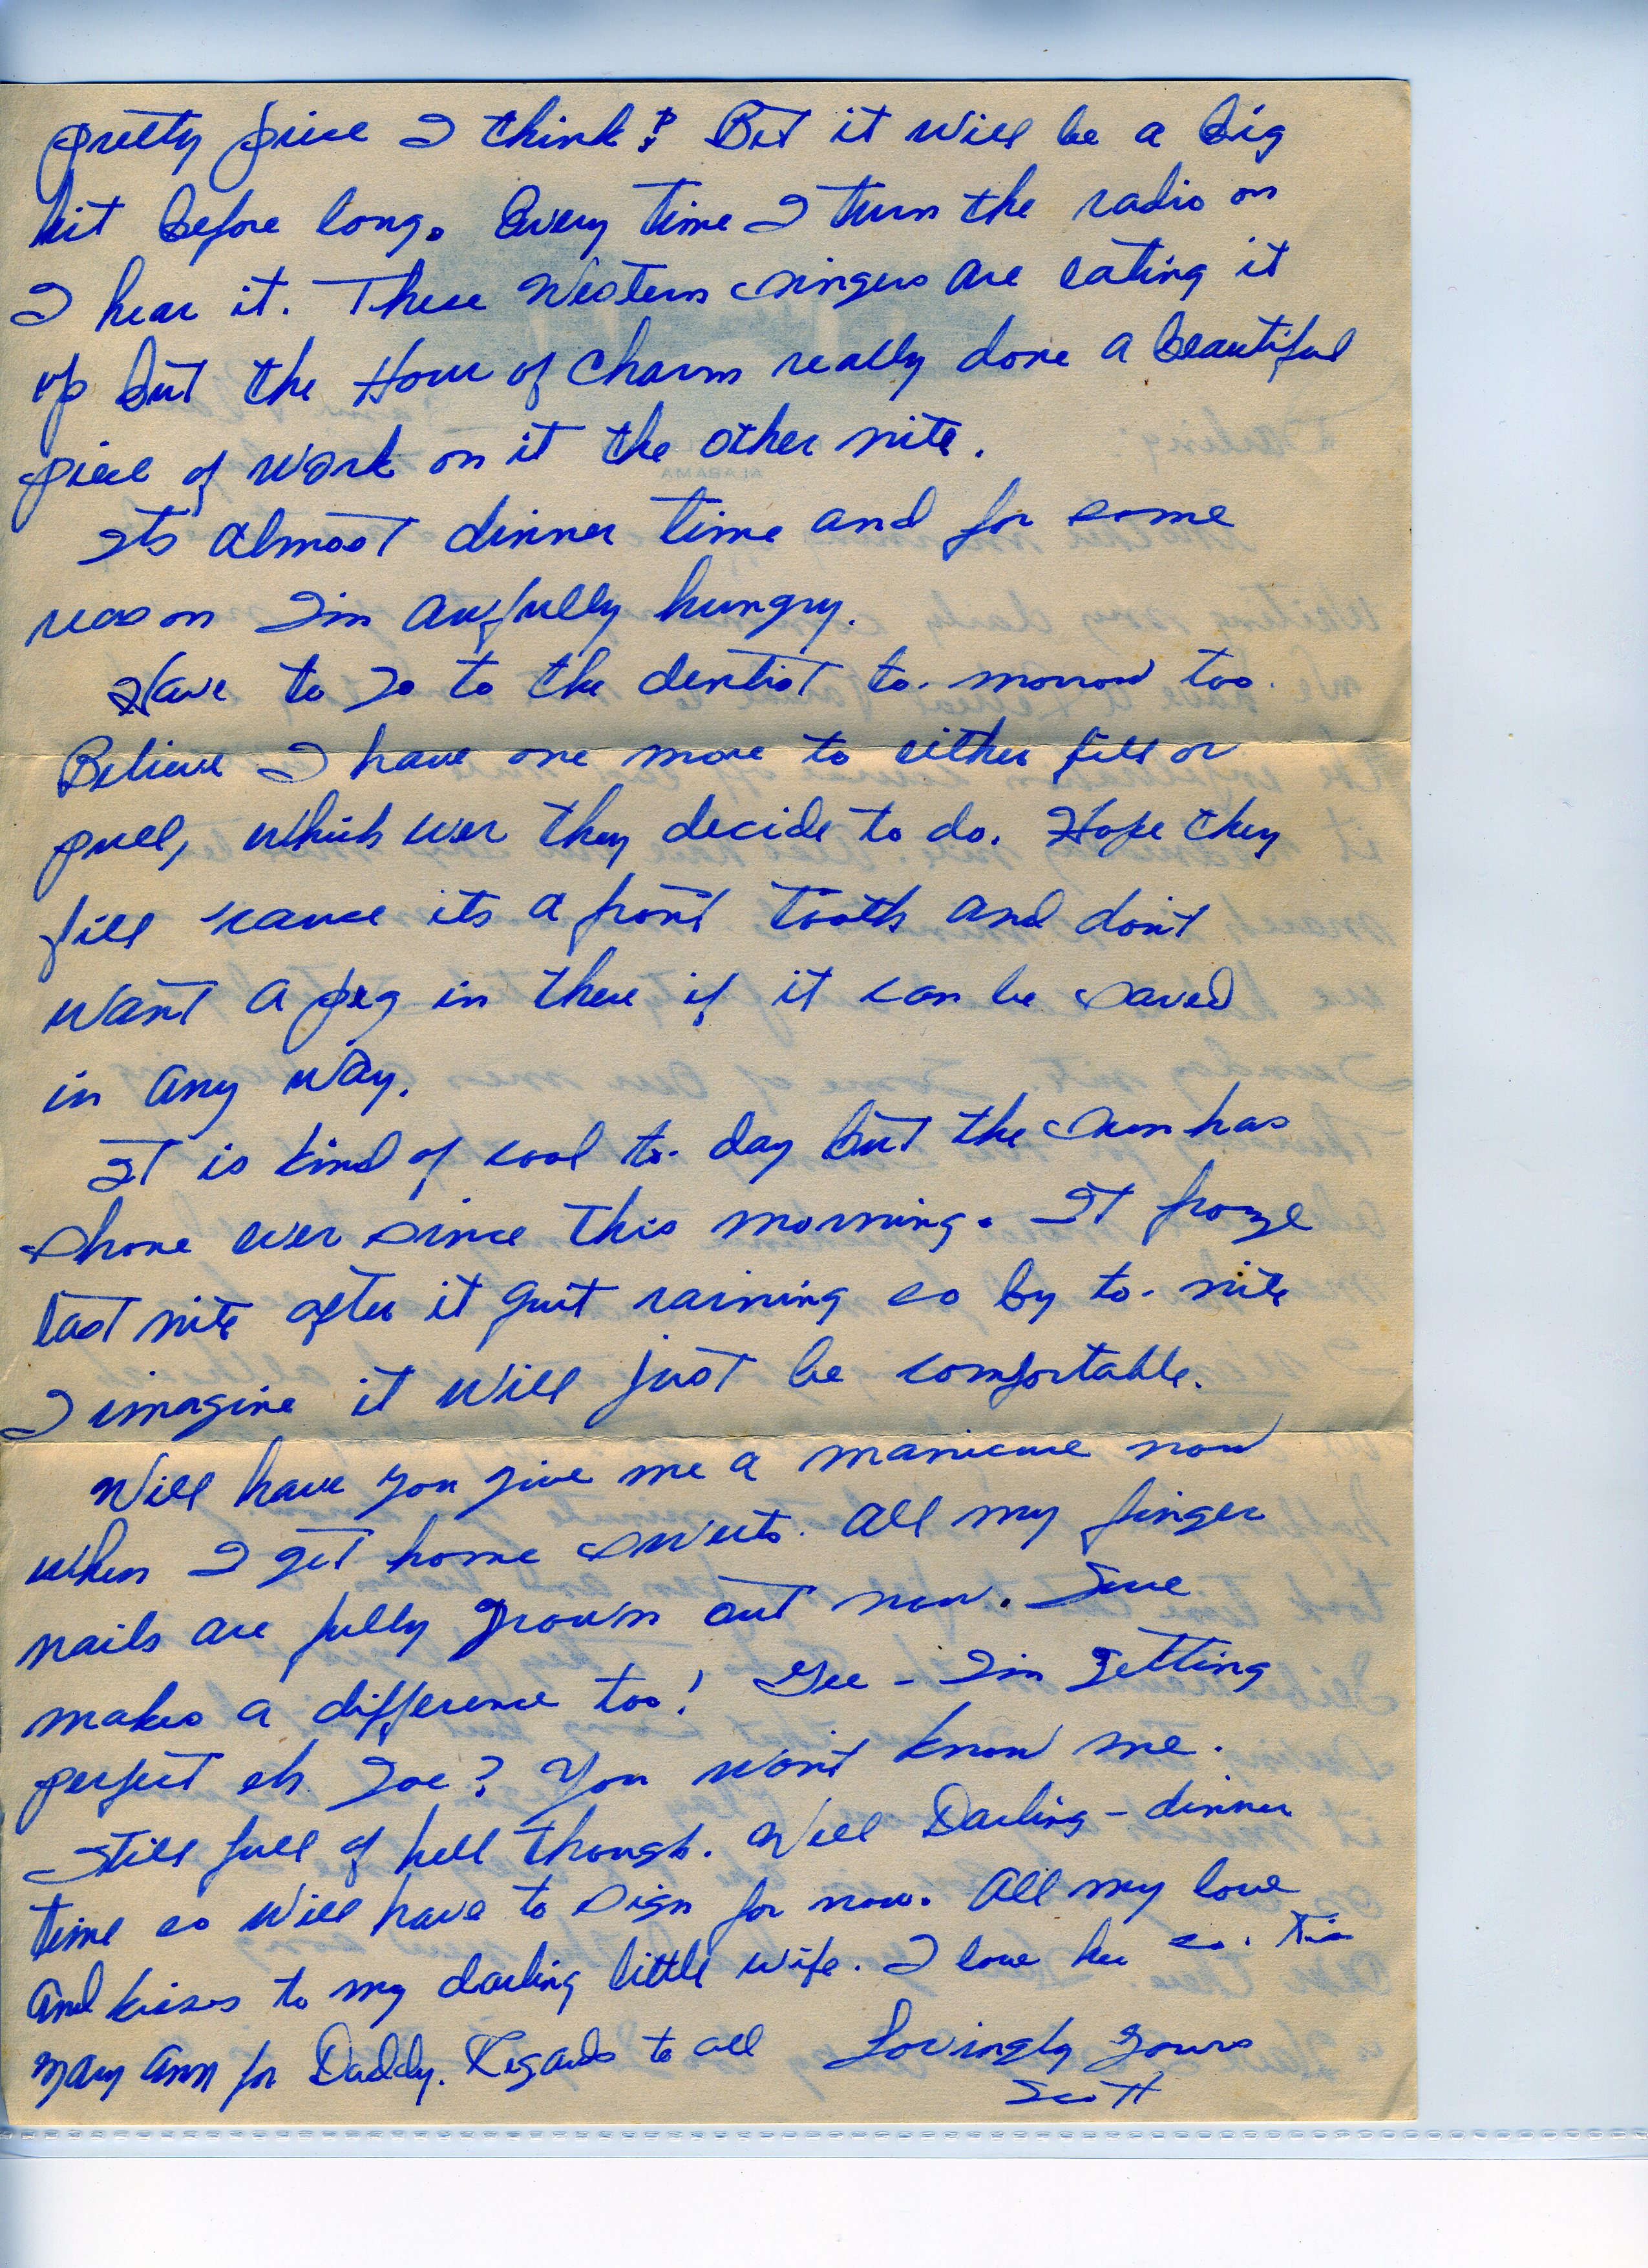 pretty piece I think? Bet it will be a big
hit before long. Every time I turn the radio on
I hear it. These Western singers are eating it
up but the Hour of Charm really done a beautiful
piece of work on it the other nite.
Its almost dinner time and for some
reason I'm awfully hungry.
Have to go to the dentist to-morrow too.
Believe I have one more to either fill or
pull, which ever they decide to do. Hope they
fill 'cause its a front tooth and don't
want a peg in there if it can be saved
in any way.
It is kind of cool to-day but the sun has
shone ever since this morning. It froze
last nite after it quit raining so by to-nite
I imagine it will just be comfortable.
Will have you give me a manicure now
when I get home sweets. All my finger
nails are fully grown out now. Sure
makes a difference too! Gee - I'm getting
perfect eh Joe? You won't know me.
Still full of hell though. Well Darling - dinner
time so will have to sign for now. All my love
and kisses to my darling little wife. I love her so. Kiss
Mary Ann for Daddy. Regards to all Lovingly yours
Scott
ALABAMA